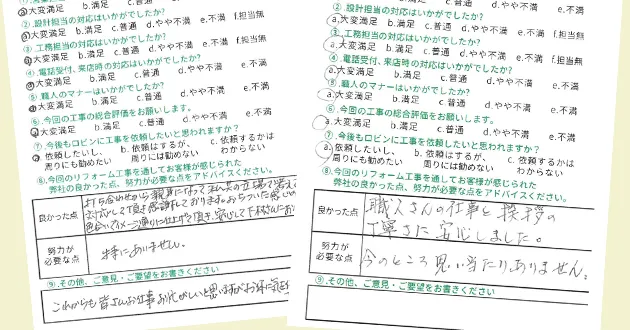 a.大変満足 b.満足 c.普通 d.やや不満 e.不満
②.設計担当の対応はいかがでしたか?
a.大変満足 b.満足 c.普通 d.やや不満 e.不満 f.担当無
③.工務担当の対応はいかがでしたか?
a.大変満足 b.満足 c.普通 d.やや不満 e.不満 f.担当無
④.電話受付、来店時の対応はいかがでしたか?
a.大変満足 b.満足 c.普通 d.やや不満 e.不満
⑤.職人のマナーはいかがでしたか?
a.大変満足 b.満足 c.普通 d.やや不満 e.不満
⑥.今回の工事の総合評価をお願いします。
a.大変満足 b.満足 c.普通 d.やや不満 e.不満
⑦.今後もロビンに工事を依頼したいと思われますか?
a.依頼したいし、 b.依頼はするが、 c.依頼するかは
周りにも勧めたい 周りには勧めない わからない
⑧.今回のリフォーム工事を通してお客様が感じられた
弊社の良かった点、努力が必要な点をアドバイスください。
良かった点
打ち合わせから親身になって私共の立場で考え
対応して頂き感謝しております。
努力が
必要な点
特にありません。
⑨.その他、ご意見・ご要望をお書きください
これからも皆さんお仕事お忙しいと思いますが
②.設計担当の対応はいかがでしたか?
a.大変満足 b.満足 c.普通 d.やや不満 e.不満
③.工務担当の対応はいかがでしたか?
a.大変満足 b.満足 c.普通 d.やや不満 e.不満 f.担当無
④.電話受付、来店時の対応はいかがでしたか?
a.大変満足 b.満足 c.普通 d.やや不満 e.不満
⑤.職人のマナーはいかがでしたか?
a.大変満足 b.満足 c.普通 d.やや不満 e.不満
⑥.今回の工事の総合評価をお願いします。
a.大変満足 b.満足 c.普通 d.やや不満 e.不満
⑦.今後もロビンに工事を依頼したいと思われますか?
a.依頼したいし、 b.依頼はするが、 c.依頼するかは
周りにも勧めたい 周りには勧めない わからない
⑧.今回のリフォーム工事を通してお客様が感じられた
弊社の良かった点、努力が必要な点をアドバイスください。
良かった点
職人さんの仕事と挨拶の
丁寧さに安心しました。
努力が
必要な点
今のところ思い当たりありません。
⑨.その他、ご意見・ご要望をお書きください